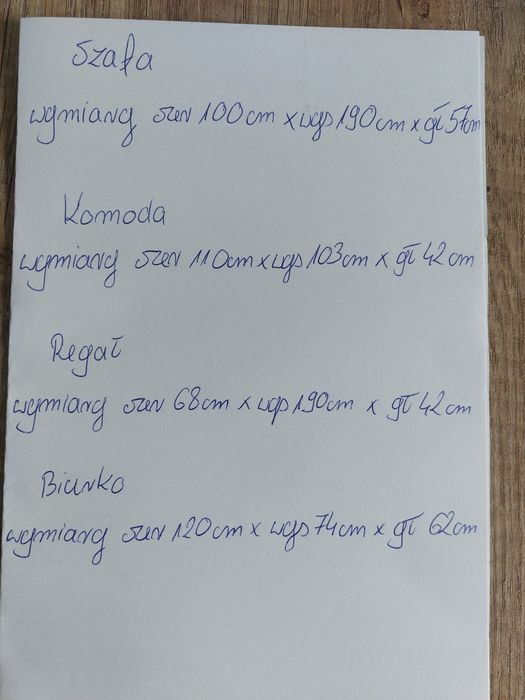 Szafa
wymiary szer 100cm x wys 190cm x gł 57cm
Komoda
wymiary szer 110cm x wys 103cm x gł 42cm
Regał
wymiary szer 68cm x wys 190cm x gł 42cm
Biurko
wymiary szer 120cm x wys 74cm x gł 62cm